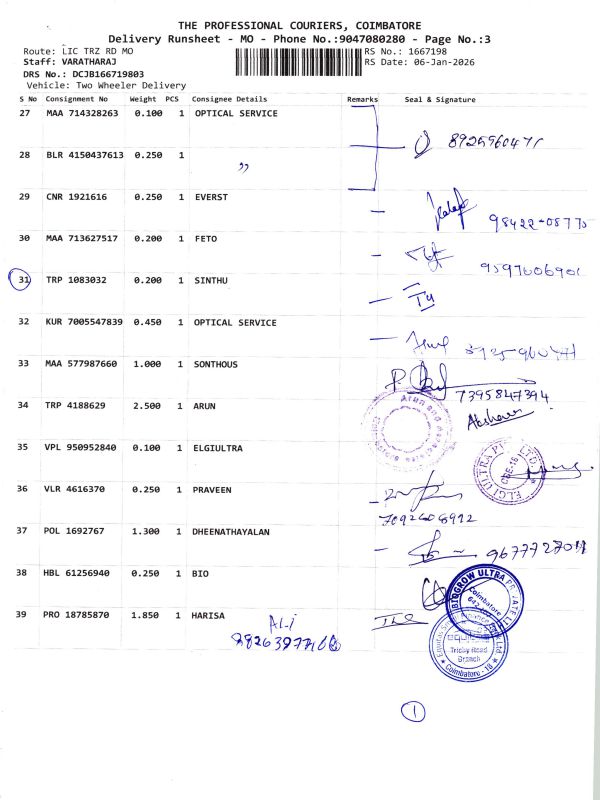 THE PROFESSIONAL COURIERS, COIMBATORE
Delivery Runsheet - MO - Phone No.:9047080280 - Page No.:3
Route: LIC TRZ RD MO RS No.: 1667198
Staff: VARATHARAJ RS Date: 06-Jan-2026
DRS No.: DCJB166719803
Vehicle: Two Wheeler Delivery
S No Consignment No Weight PCS Consignee Details Remarks Seal & Signature
27 MAA 714328263 0.100 1 OPTICAL SERVICE
8925960471
28 BLR 4150437613 0.250 1 ,,
29 CNR 1921616 0.250 1 EVERST
98422-08775
30 MAA 713627517 0.200 1 FETO
9597606901
31 TRP 1083032 0.200 1 SINTHU
32 KUR 7005547839 0.450 1 OPTICAL SERVICE
33 MAA 577987660 1.000 1 SONTHOUS
7395847394
34 TRP 4188629 2.500 1 ARUN
35 VPL 950952840 0.100 1 ELGIULTRA
ELGI ULTRA PVT LTD
CBE-18
36 VLR 4616370 0.250 1 PRAVEEN
37 POL 1692767 1.300 1 DHEENATHAYALAN
38 HBL 61256940 0.250 1 BIO
BIOGROW ULTRA PRIVATE LTD
Coimbatore
39 PRO 18785870 1.850 1 HARISA
Ali
equitas
Trichy Road
Branch
Coimbatore - 18
1